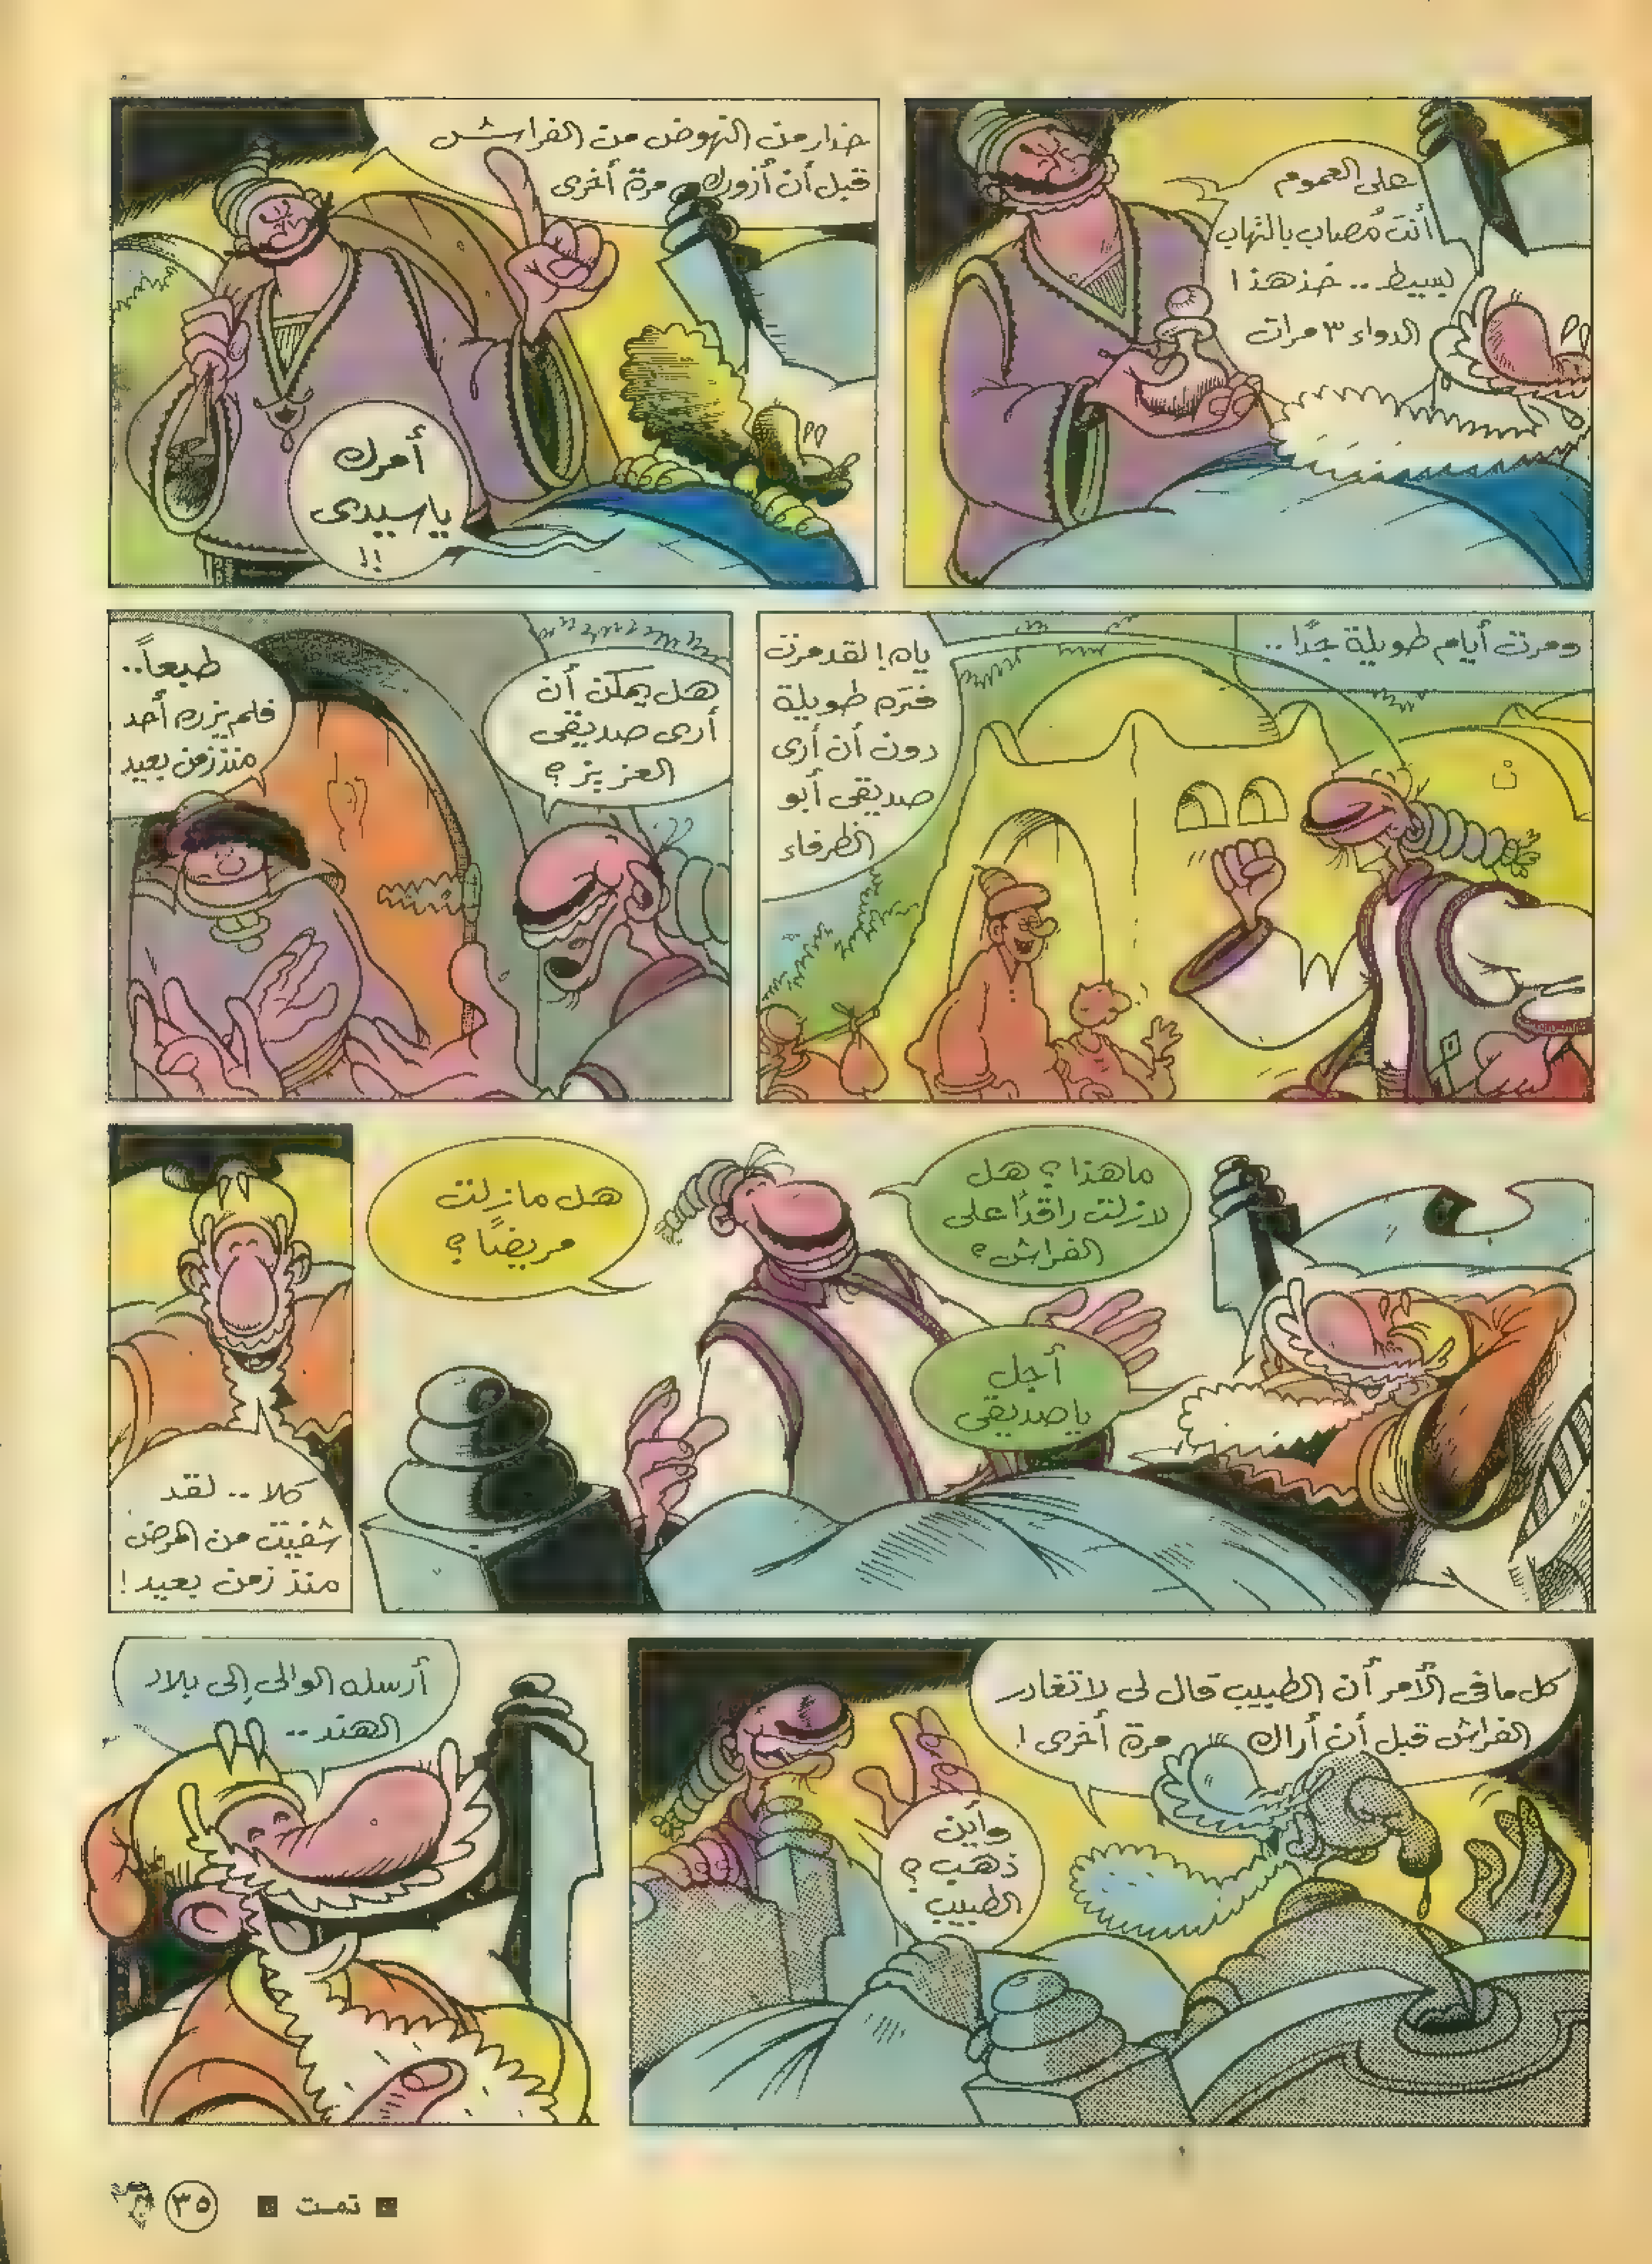 على العموم
أنتَ مُصاب بالتهاب
بسيط.. خذ هذا
الدواء ٣ مرات
حذار من النهوض من الفراش
قبل أن أزورك مرة أخرى
أمرك
ياسيدى
!!
ومرت أيام طويلة جدًا..
ياه! لقد مرت
فتره طويلة
دون أن أرى
صديقى أبو
الظرفاء
هل يمكن أن
أرى صديقى
العزيز؟
طبعاً..
فلم يزره أحد
منذ زمن بعيد
ماهذا؟ هل
لازلت راقدًا على
الفراش؟
أجل
ياصديقى
هل مازلت
مريضًا؟
كلا.. لقد
شفيت من المرض
منذ زمن بعيد!
كل مافى الأمر أن الطبيب قال لى لاتغادر
الفراش قبل أن أراك مرة أخرى!
وأين
ذهب؟
الطبيب
أرسله الوالى إلى بلاد
الهند..
تمت
٣٥